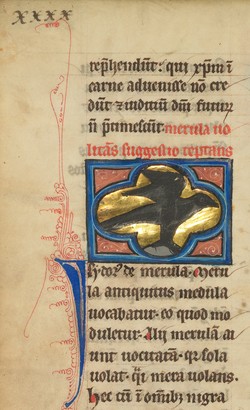 xxxx
rep̄hendūt: qui xp̄m ī
carne aduenisse nō cre
dūt ⁊ iudiciū dn̄i futur
n̄ ꝑtimescūt merula uo
litās suggestio tēptatiōs
de merula. Meru
la antiquitus medula
uocabatur. eo quod mo
duletur. Alij merulā a
iunt uocitatā. qr̄ sola
uolat. q̄i mera uolans.
hec cū ī omībꝫ nigra